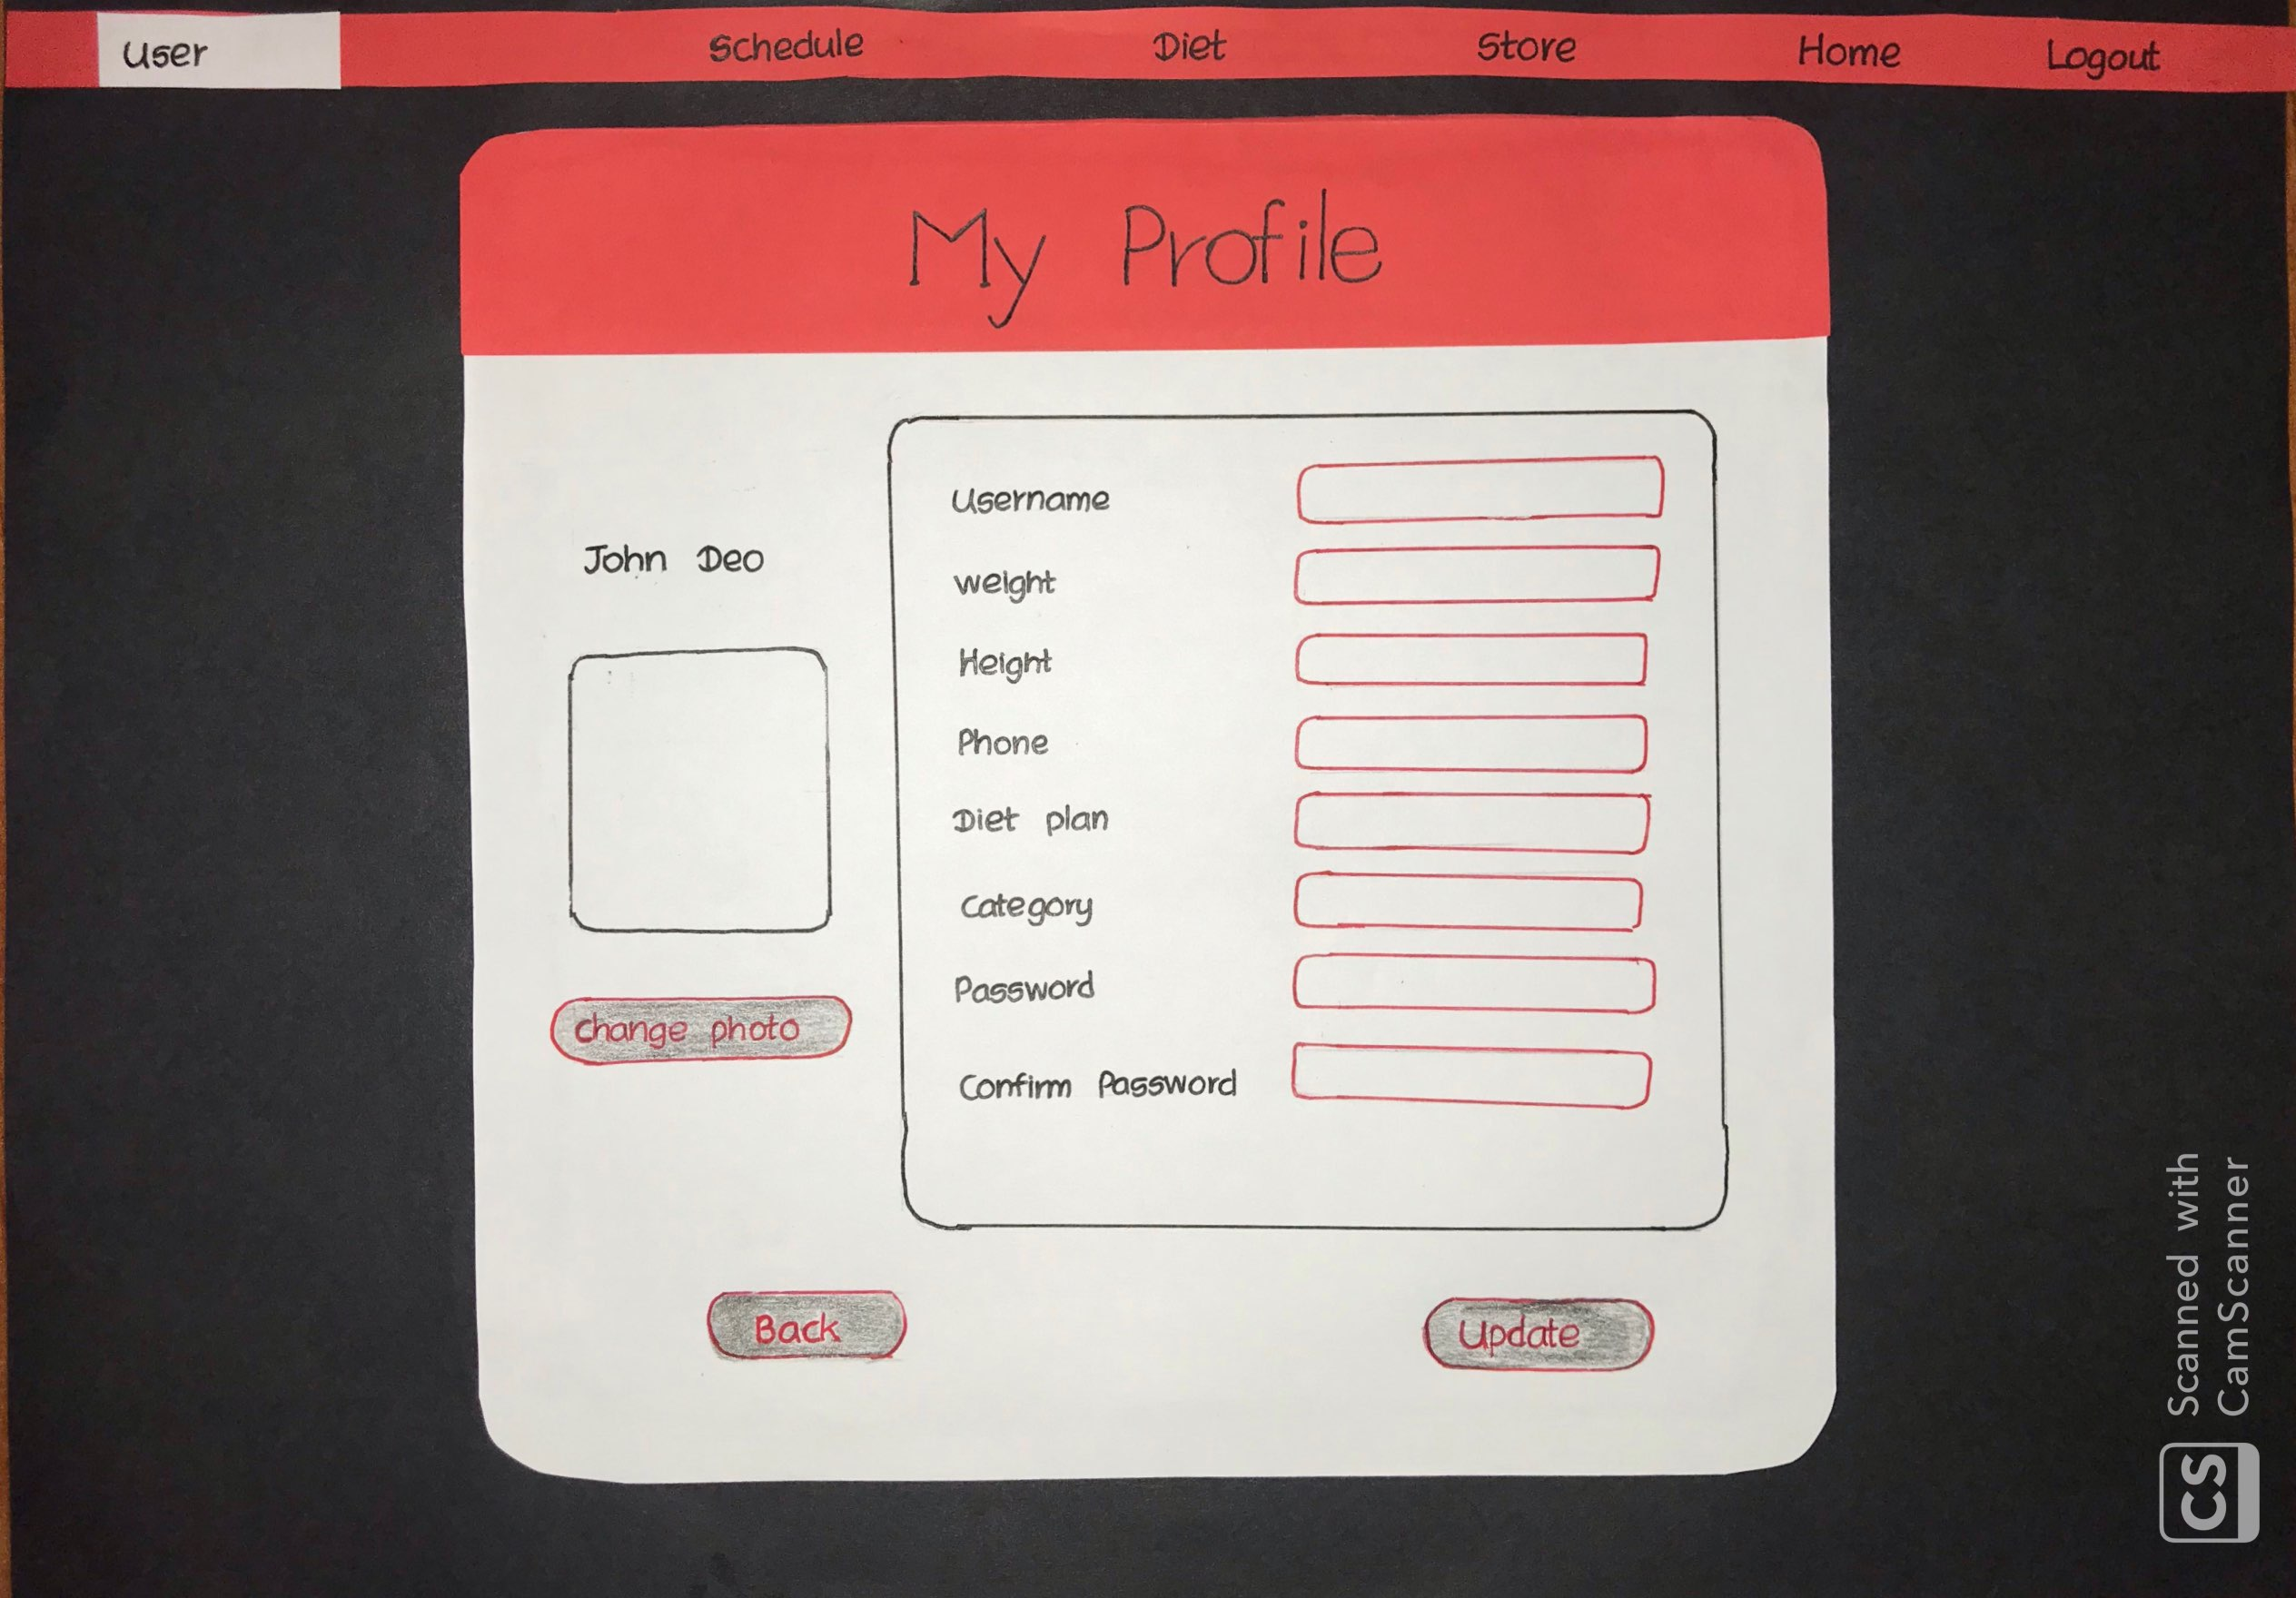 User Schedule Diet Store Home Logout
My Profile
John Deo
Username
weight
Height
Phone
Diet plan
Category
Password
Confirm Password
Change photo
Back
Update
Scanned with
CamScanner
CS